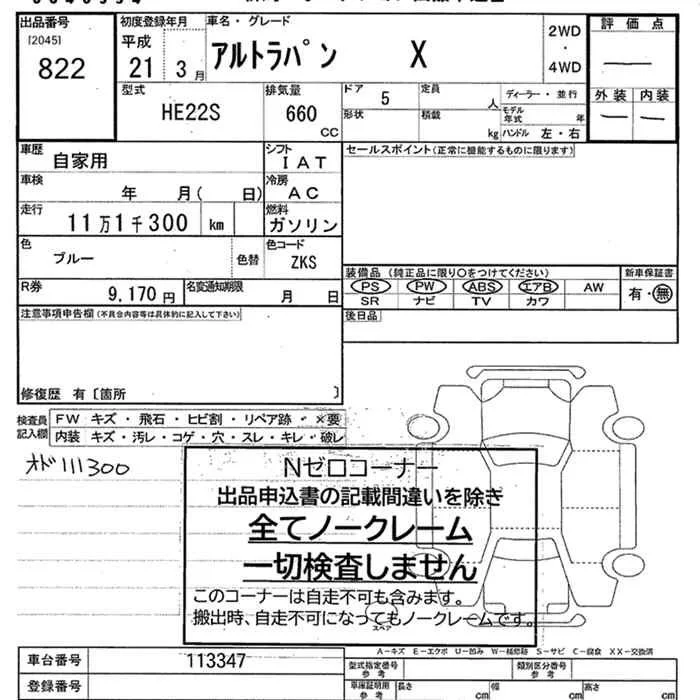 出品番号
[2045]
822
初度登録年月
平成
21 3月
車名・グレード
アルトラパン X
2WD
・
4WD
評価点
外装 内装
型式
HE22S
排気量
660
CC
ドア
5
定員
人
ディーラー・並行
形状
積載
kg
モデル年式
年
ハンドル 左・右
車歴
自家用
シフト
IAT
セールスポイント(正常に機能するものに限ります)
車検
年 月( 日)
冷房
AC
走行
11万1千300 km
燃料
ガソリン
色
ブルー
色替
色コード
ZKS
装備品(純正品に限り○をつけてください)
PS PW ABS エアB AW
SR ナビ TV カワ
新車保証書
有・無
R券
9,170円
名変通知期限
月 日
注意事項申告欄(不具合内容等は具体的に記入して下さい)
後日品
修復歴 有〔箇所 〕
検査員記入欄
FW キズ・飛石・ヒビ割・リペア跡・×要
内装 キズ・汚レ・コゲ・穴・スレ・キレ・破レ
オド111300
Nゼロコーナー
出品申込書の記載間違いを除き
全てノークレーム
一切検査しません
このコーナーは自走不可も含みます。
搬出時、自走不可になってもノークレームです。
スペア
A-キズ E-エクボ U-凹み W-補修跡 S-サビ C-腐食 XX-交換済
車台番号
113347
型式指定番号
参考
類別区分番号
参考
登録番号
車庫証明用
参考
長さ
cm
幅
cm
高さ
cm